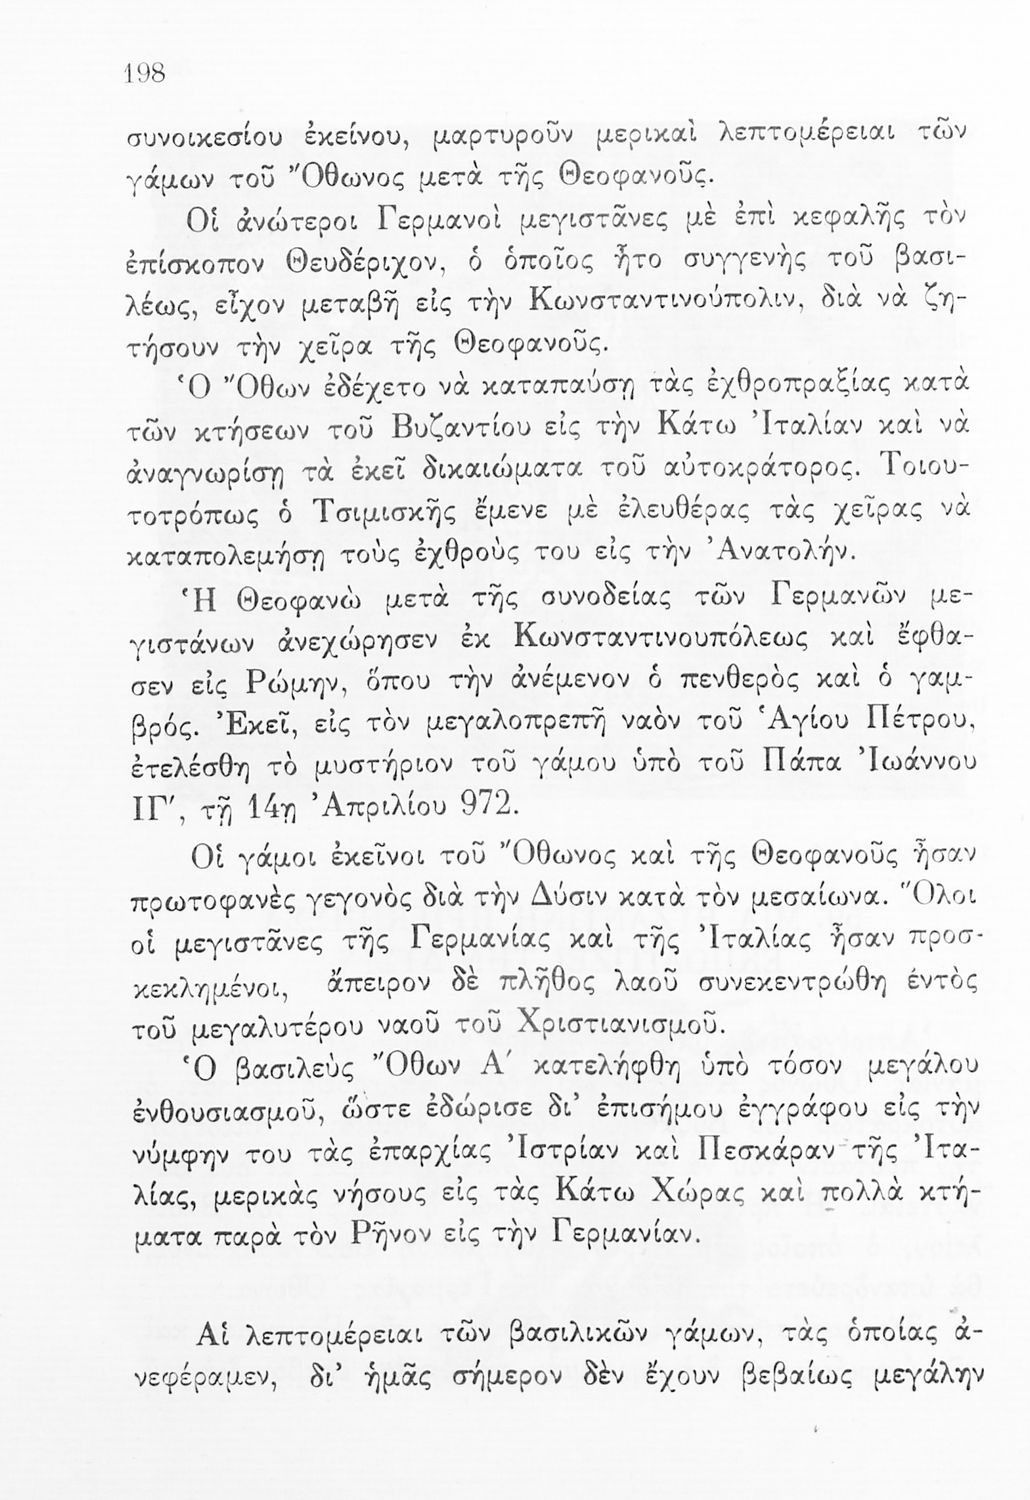 198
συνοικεσίου ἐκείνου, μαρτυροῦν μερικαὶ λεπτομέρειαι τῶν
γάμων τοῦ Ὄθωνος μετὰ τῆς Θεοφανοῦς.
Οἱ ἀνώτεροι Γερμανοὶ μεγιστᾶνες μὲ ἐπὶ κεφαλῆς τὸν
ἐπίσκοπον Θευδέριχον, ὁ ὁποῖος ἦτο συγγενὴς τοῦ βασι-
λέως, εἶχον μεταβῆ εἰς τὴν Κωνσταντινούπολιν, διὰ νὰ ζη-
τήσουν τὴν χεῖρα τῆς Θεοφανοῦς.
Ὁ Ὄθων ἐδέχετο νὰ καταπαύσῃ τὰς ἐχθροπραξίας κατὰ
τῶν κτήσεων τοῦ Βυζαντίου εἰς τὴν Κάτω Ἰταλίαν καὶ νὰ
ἀναγνωρίσῃ τὰ ἐκεῖ δικαιώματα τοῦ αὐτοκράτορος. Τοιου-
τοτρόπως ὁ Τσιμισκῆς ἔμενε μὲ ἐλευθέρας τὰς χεῖρας νὰ
καταπολεμήσῃ τοὺς ἐχθροὺς του εἰς τὴν Ἀνατολήν.
Ἡ Θεοφανὼ μετὰ τῆς συνοδείας τῶν Γερμανῶν με-
γιστάνων ἀνεχώρησεν ἐκ Κωνσταντινουπόλεως καὶ ἔφθα-
σεν εἰς Ρώμην, ὅπου τὴν ἀνέμενον ὁ πενθερὸς καὶ ὁ γαμ-
βρός. Ἐκεῖ, εἰς τὸν μεγαλοπρεπῆ ναὸν τοῦ Ἁγίου Πέτρου,
ἐτελέσθη τὸ μυστήριον τοῦ γάμου ὑπὸ τοῦ Πάπα Ἰωάννου
ΙΓ', τῇ 14ῃ Ἀπριλίου 972.
Οἱ γάμοι ἐκεῖνοι τοῦ Ὄθωνος καὶ τῆς Θεοφανοῦς ἦσαν
πρωτοφανὲς γεγονὸς διὰ τὴν Δύσιν κατὰ τὸν μεσαίωνα. Ὅλοι
οἱ μεγιστᾶνες τῆς Γερμανίας καὶ τῆς Ἰταλίας ἦσαν προσ-
κεκλημένοι, ἄπειρον δὲ πλῆθος λαοῦ συνεκεντρώθη ἐντὸς
τοῦ μεγαλυτέρου ναοῦ τοῦ Χριστιανισμοῦ.
Ὁ βασιλεὺς Ὄθων Α' κατελήφθη ὑπὸ τόσον μεγάλου
ἐνθουσιασμοῦ, ὥστε ἐδώρισε δι' ἐπισήμου ἐγγράφου εἰς τὴν
νύμφην του τὰς ἐπαρχίας Ἰστρίαν καὶ Πεσκάραν τῆς Ἰτα-
λίας, μερικὰς νήσους εἰς τὰς Κάτω Χώρας καὶ πολλὰ κτή-
ματα παρὰ τὸν Ρῆνον εἰς τὴν Γερμανίαν.
Αἱ λεπτομέρειαι τῶν βασιλικῶν γάμων, τὰς ὁποίας ἀ-
νεφέραμεν, δι' ἡμᾶς σήμερον δὲν ἔχουν βεβαίως μεγάλην